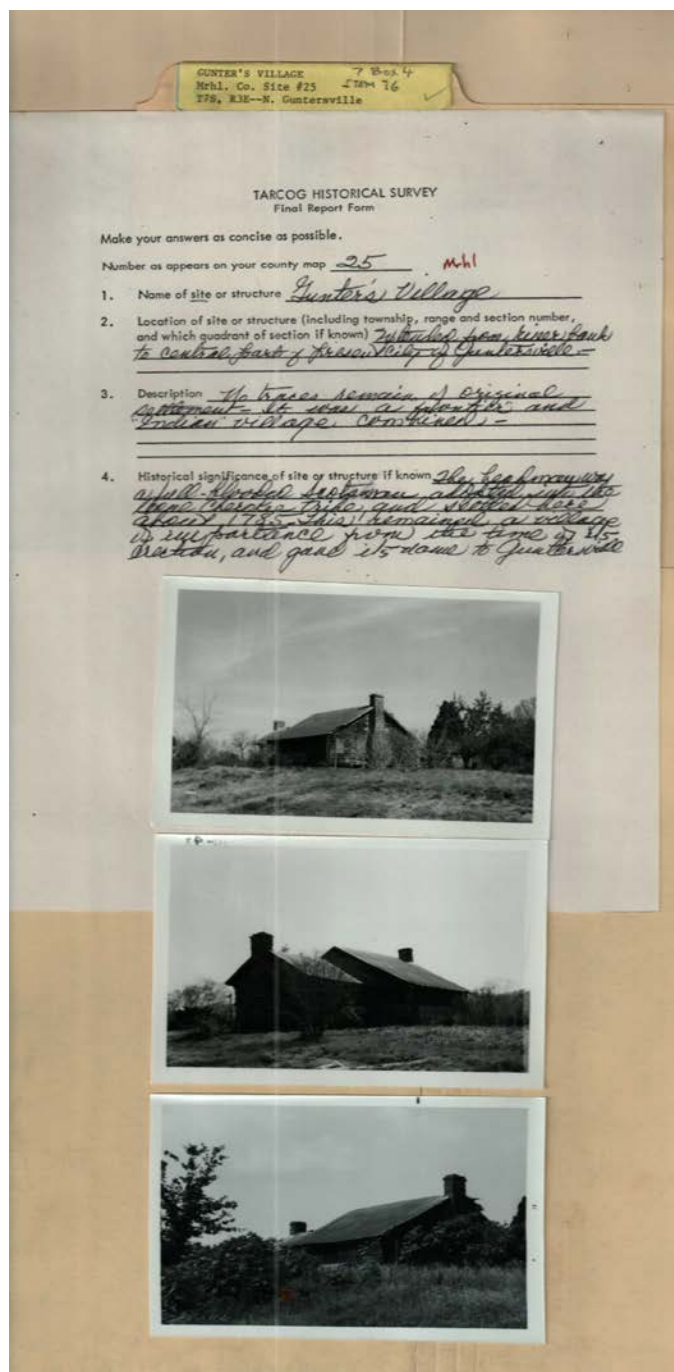 GUNTER'S VILLAGE 7 Box 4
Mrhl. Co. Site #25 ITEM 76
T7S, R3E--N. Guntersville ✓
TARCOG HISTORICAL SURVEY
Final Report Form
Make your answers as concise as possible.
Number as appears on your county map 25 Mhl
1. Name of site or structure Gunter's Village
2. Location of site or structure (including township, range and section number,
and which quadrant of section if known) Extended from river bank
to central part of present city of Guntersville.—
3. Description No traces remain of original
settlement - It was a frontier and
Indian village combined.—
4. Historical significance of site or structure if known The headman was
a full-blooded Scotsman, adopted into the
Cherokee tribe, and settled here
about 1785. This remained a village
of importance from the time of its
creation, and gave its name to Guntersville